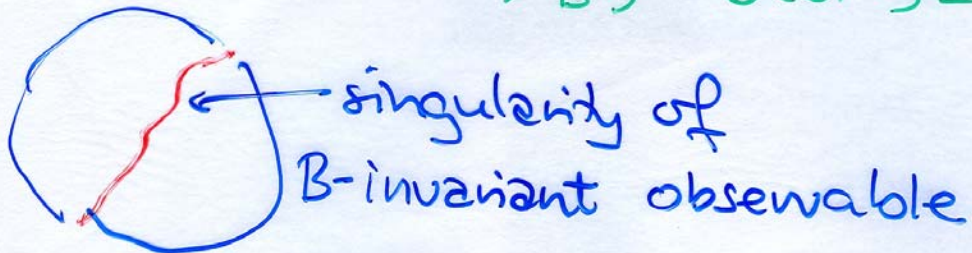 singularity of
B-invariant observable